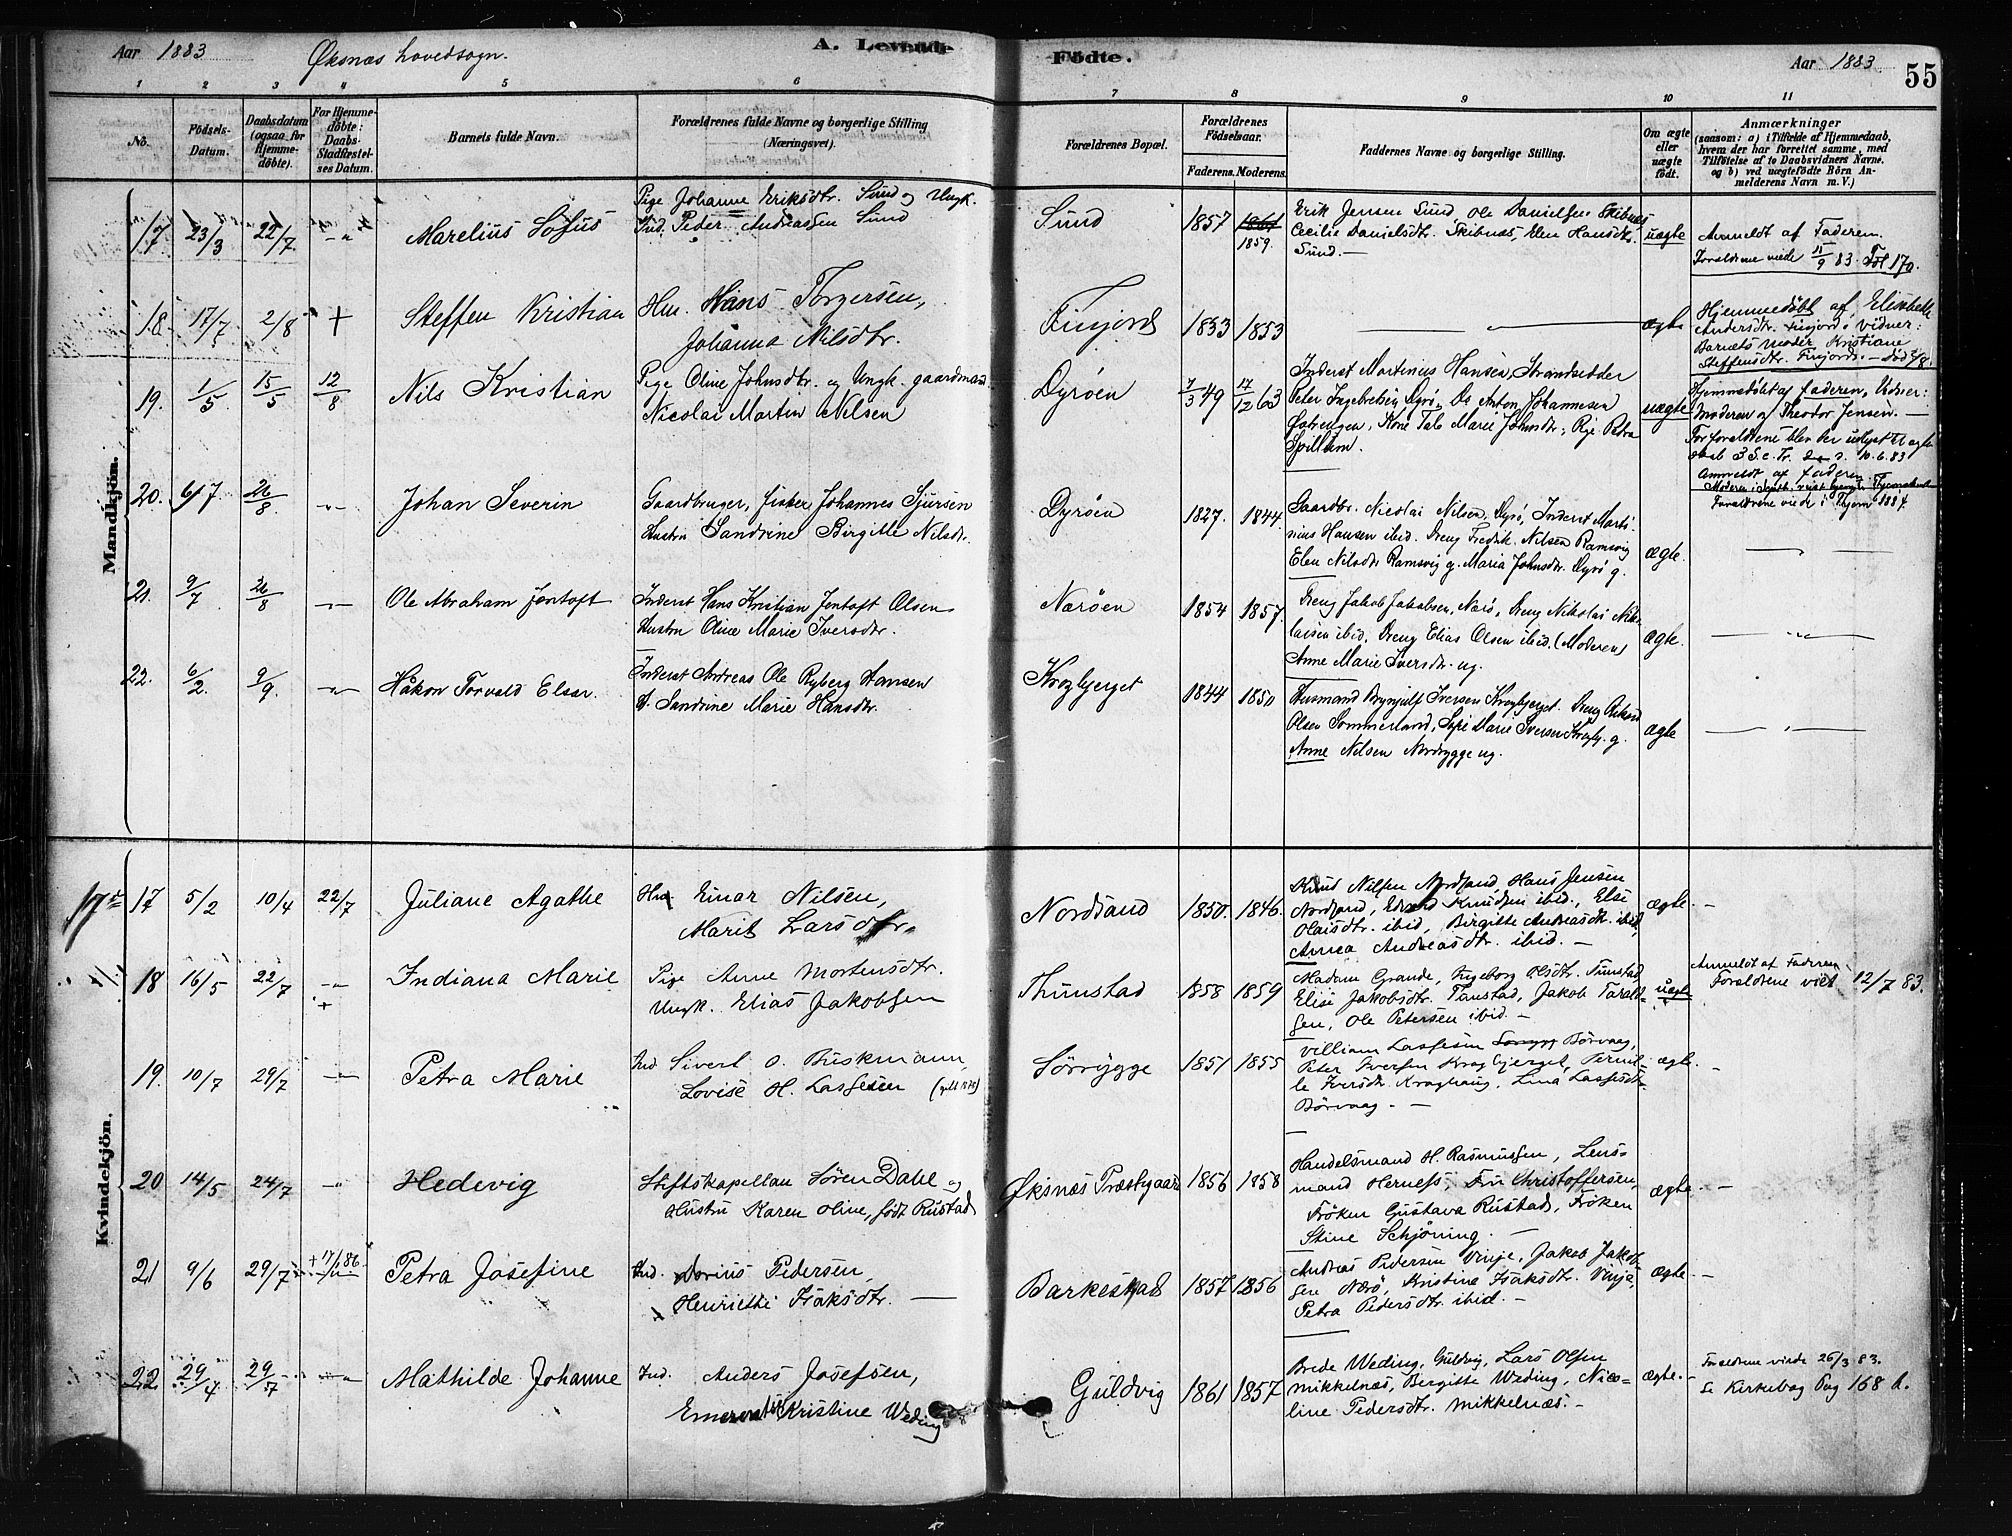 Aar 1883 Øksnæs hovedsogn. A. Levende Födte. Aar 1883. 55
1 2 3 4 5 6 7 8 9 10 11
No. Födsels-Datum. Daabsdatum (ogsaa for Hjemmedöbte). For Hjemmedöbte: Daabs-Stadfæstelses Datum. Barnets fulde Navn. Forældrenes fulde Navne og borgerlige Stilling (Næringsvei). Forældrenes Bopæl. Forældrenes Födselsaar. Faderens. Moderens. Faddernes Navne og borgerlige Stilling. Om ægte eller uægte födt. Anmærkninger
(saasom: a) i Tilfælde af Hjemmedaab, hvem der har forrettet samme, med Tilföielse af to Daabsvidners Navne. og b) ved uægtefödte Börn Anmelderens Navn m. V.)
Mandkjön.
17. 23/3 22/7 Marelius Sofus
Pige Johanne Eriksdtr. Sund og Ungk.
Ind. Peder Andreassen Sund
Sund 1857 1861 1859.
Erik Jensen Sund, Ole Danielsen Skibnæs
Cecilie Danielsdtr. Skibnæs, Elen Hansdtr.
Sund.
uægte
Anmeldt af Faderen.
Forældrene viede 11/9 83. Fol 170.
18. 17/7 2/8 + Steffen Kristian
Hm. Hans Torgersen,
Johanna Nilsdtr.
Finjord 1833 1853
ægte
Hjemmedöbt af, Elisabeth
Andersdtr. Finjord. Vidner:
Barnets Moder Kristiane
Steffensdtr. Finjord.
19. 1/5 15/5 12/8 Nils Kristian
Pige Oline Johnsdtr. og Ungk. gaardmand
Nicolai Martin Nilsen
Dyrøen 7/3 49 17/12 63
Inderst Martinius Hansen, Strandsidder
Peter Ingebrigtsen Dyrø, Anton Johannesen
Kone Marie Johnsdtr., Pige Petra
Spillum.
uægte
Hjemmedöbt af faderen, Vidner:
Moderen og Theodor Jensen.
Anmeldt af faderen
20. 6/7 26/8 Johan Severin
Gaardbruger, fisker Johannes Sjursen
Hustru Sandrine Birgitte Nilsdtr.
Dyrøen 1827. 1844.
Gaardbr. Nicolai Nilsen, Dyrø, Inderst Marti-
nius Hansen ibid. Dreng Fredrik Nilsen Ramsvig
Elen Nilsdtr Ramsvig g. Maria Johnsdtr. Dyrø g.
ægte.
21. 9/7 26/8 Ole Abraham Jentoft
Inderst Hans Kristian Jentoft Olsen
Hustru Oline Marie Iversdtr.
Nærøen 1854 1857.
Dreng Jakob Jakobsen, Nærø, Dreng Nikolai Niko-
laisen ibid, Dreng Elias Olsen ibid. (Moderen)
Anne Marie Iversdtr. ug.
ægte.
22. 6/2. 9/9. Håkon Torvald Elssr.
Inderst Andreas Ole Ryberg Hansen
H. Sandrine Marie Hansdtr.
Kragbjerget 1844 1850
Husmand Brynjulf Iversen Kragbjerget. Dreng Rikard
Olsen Sommerland, Sofie Marie Iversen Kragbj. g.
Anne Nilsen Nordrygge ug.
ægte
Kvindekjön.
17 5/2 10/4 22/7 Juliane Agathe
Hm. Einar Nilsen,
Marit Larsdtr.
Nordsand 1850. 1846.
Knud Nilsen Nordsand, Hans Jensen
Nordsand, Edvard Knudsen ibid., Else
Olaisdtr. ibid, Birgitte Andreasdtr. ibid,
Anna Andreasdtr. ibid. –
ægte.
18 16/5 22/7 + Indiana Marie
Pige Anne Mortensdtr.
Ungk. Elias Jakobsen
Thunstad 1858 1859
Madam Grande, Ingeborg Olsdtr. Tunstad,
Elise Jakobsdtr. Tunstad, Jakob Tarald-
sen, Ole Petersen ibid. –
uægte
Anmeldt af Faderen
Forældrene viet 12/7 83.
19. 10/7 29/7 Petra Marie
Ind Sivert O. Buskmann,
Lovise H. Lassesen
Sørrygge 1851 1855
Villiam Lassesen Børvaag,
Peter Iversen Kragbjerget, Pernil-
le Iversdtr. Kraghaug, Lina Lassesdtr.
Börvaag. –
ægte.
20 14/5 24/7 Hedevig
Stiftskapellan Sören Dahl og
Hustru Karen Oline, født Rustad
Øksnæs Præstegaard 1856 1858
Handelsmand H. Rasmussen, Lens-
mand Herness, Fru Christoffersen,
Frøken Gustava Rustad, Frøken
Stine Schjöning. –
ægte
21 9/6 29/7 + 17/1 86. Petra Josefine
Ind. Dorius Pedersen,
Henriette Isaksdtr.
Barkestad 1857 1856
Andreas Pedersen Vinje, Jakob Jakob-
sen Nærö, Kristina Isaksdtr. Vinje,
Petra Pedersdtr. ibid. –
ægte.
22. 29/4 29/7 Mathilde Johanne
Ind. Anders Josefsen,
Kristine Weding
Guldvig 1861 1857
Brede Weding, Guldvig, Lars Olsen
Mikkelnæs, Bergitte Weding, Nico-
line Pedersdtr. Mikkelnæs. –
ægte.
Forældrene viede 26/3 83.
Se Kirkebog Pag 168 b.